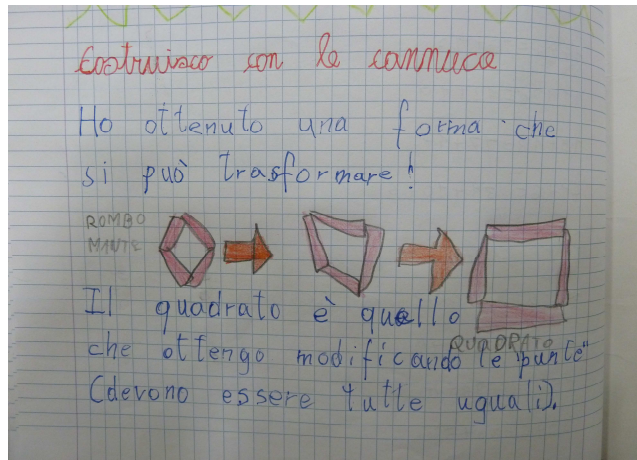 Costruisco con le cannucce
Ho ottenuto una forma che
si può trasformare!
ROMBO
MANTE
Il quadrato è quello
QUADRATO
che ottengo modificando le "punte"
(devono essere tutte uguali).